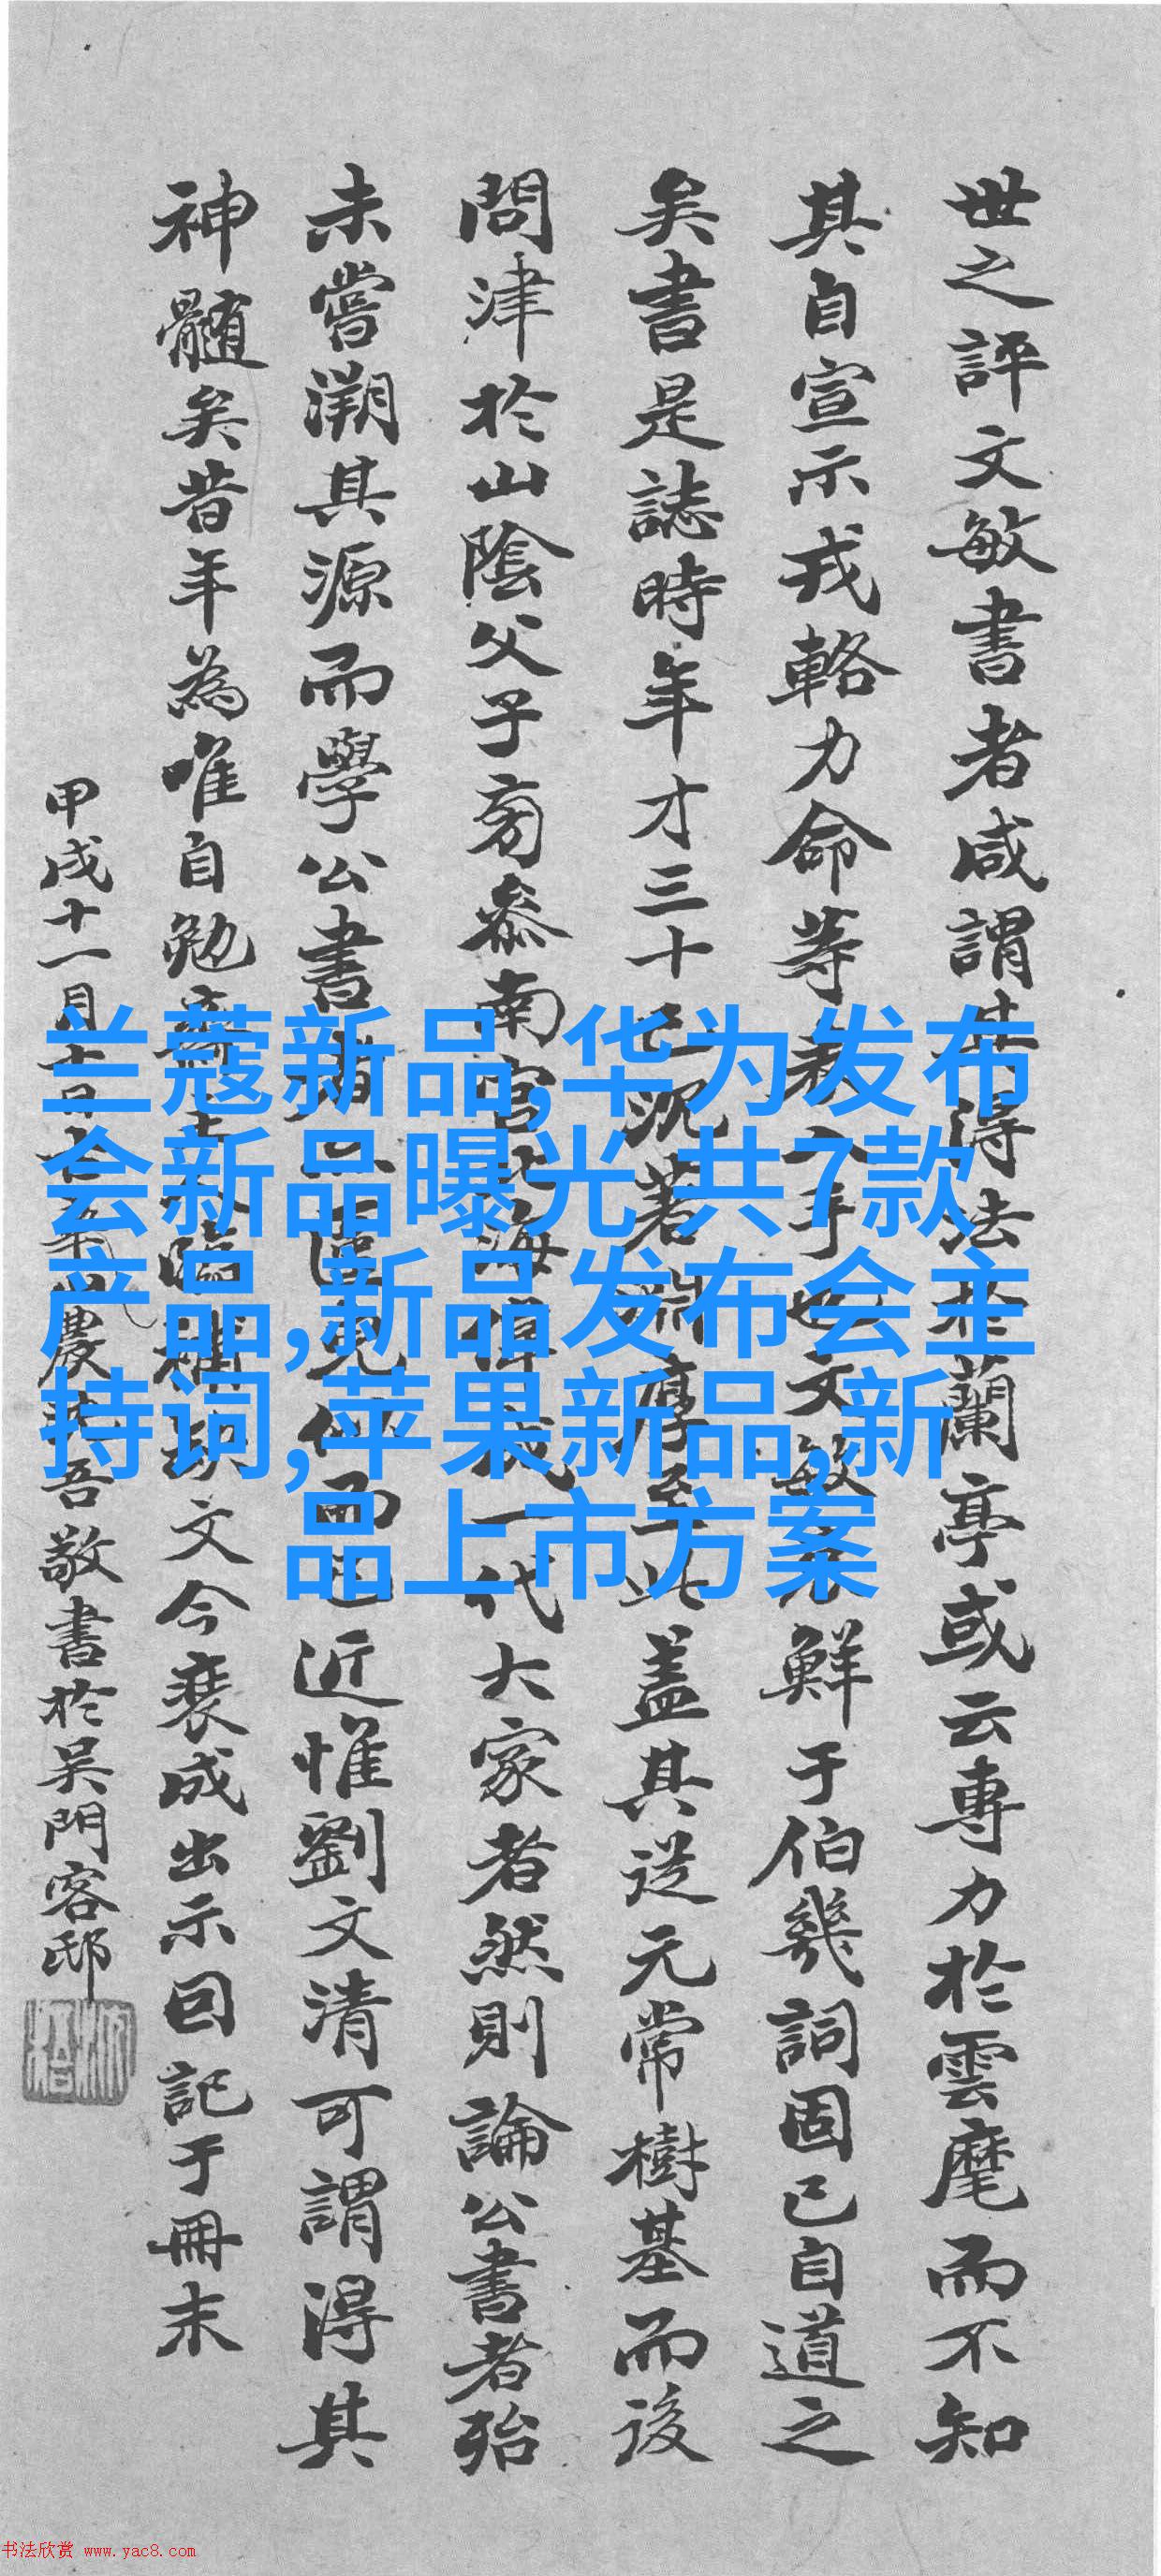 世之評文敏書者咸謂其得法於蘭亭或云專力於雲麾而不知
其自宣示戎輅力命等 手也文敏 鮮于伯幾詞固已自道之
矣書是誌時年才三十已沉著淵厚至此蓋其從元常樹基而後
問津於山陰父子旁參南宮北海 一代大家者然則論公書者殆
未嘗溯其源而學公書者 近惟劉文清可謂得其
神髓矣昔年為唯自勉齋 文今裴成出示回記于冊末
甲戌十一月 農 吾敬書於吴門客邸
兰蔻新品,华为发布
会新品曝光 共7款
产品,新品发布会主
持词,苹果新品,新
品上市方案
书法欣赏 www.yac8.com